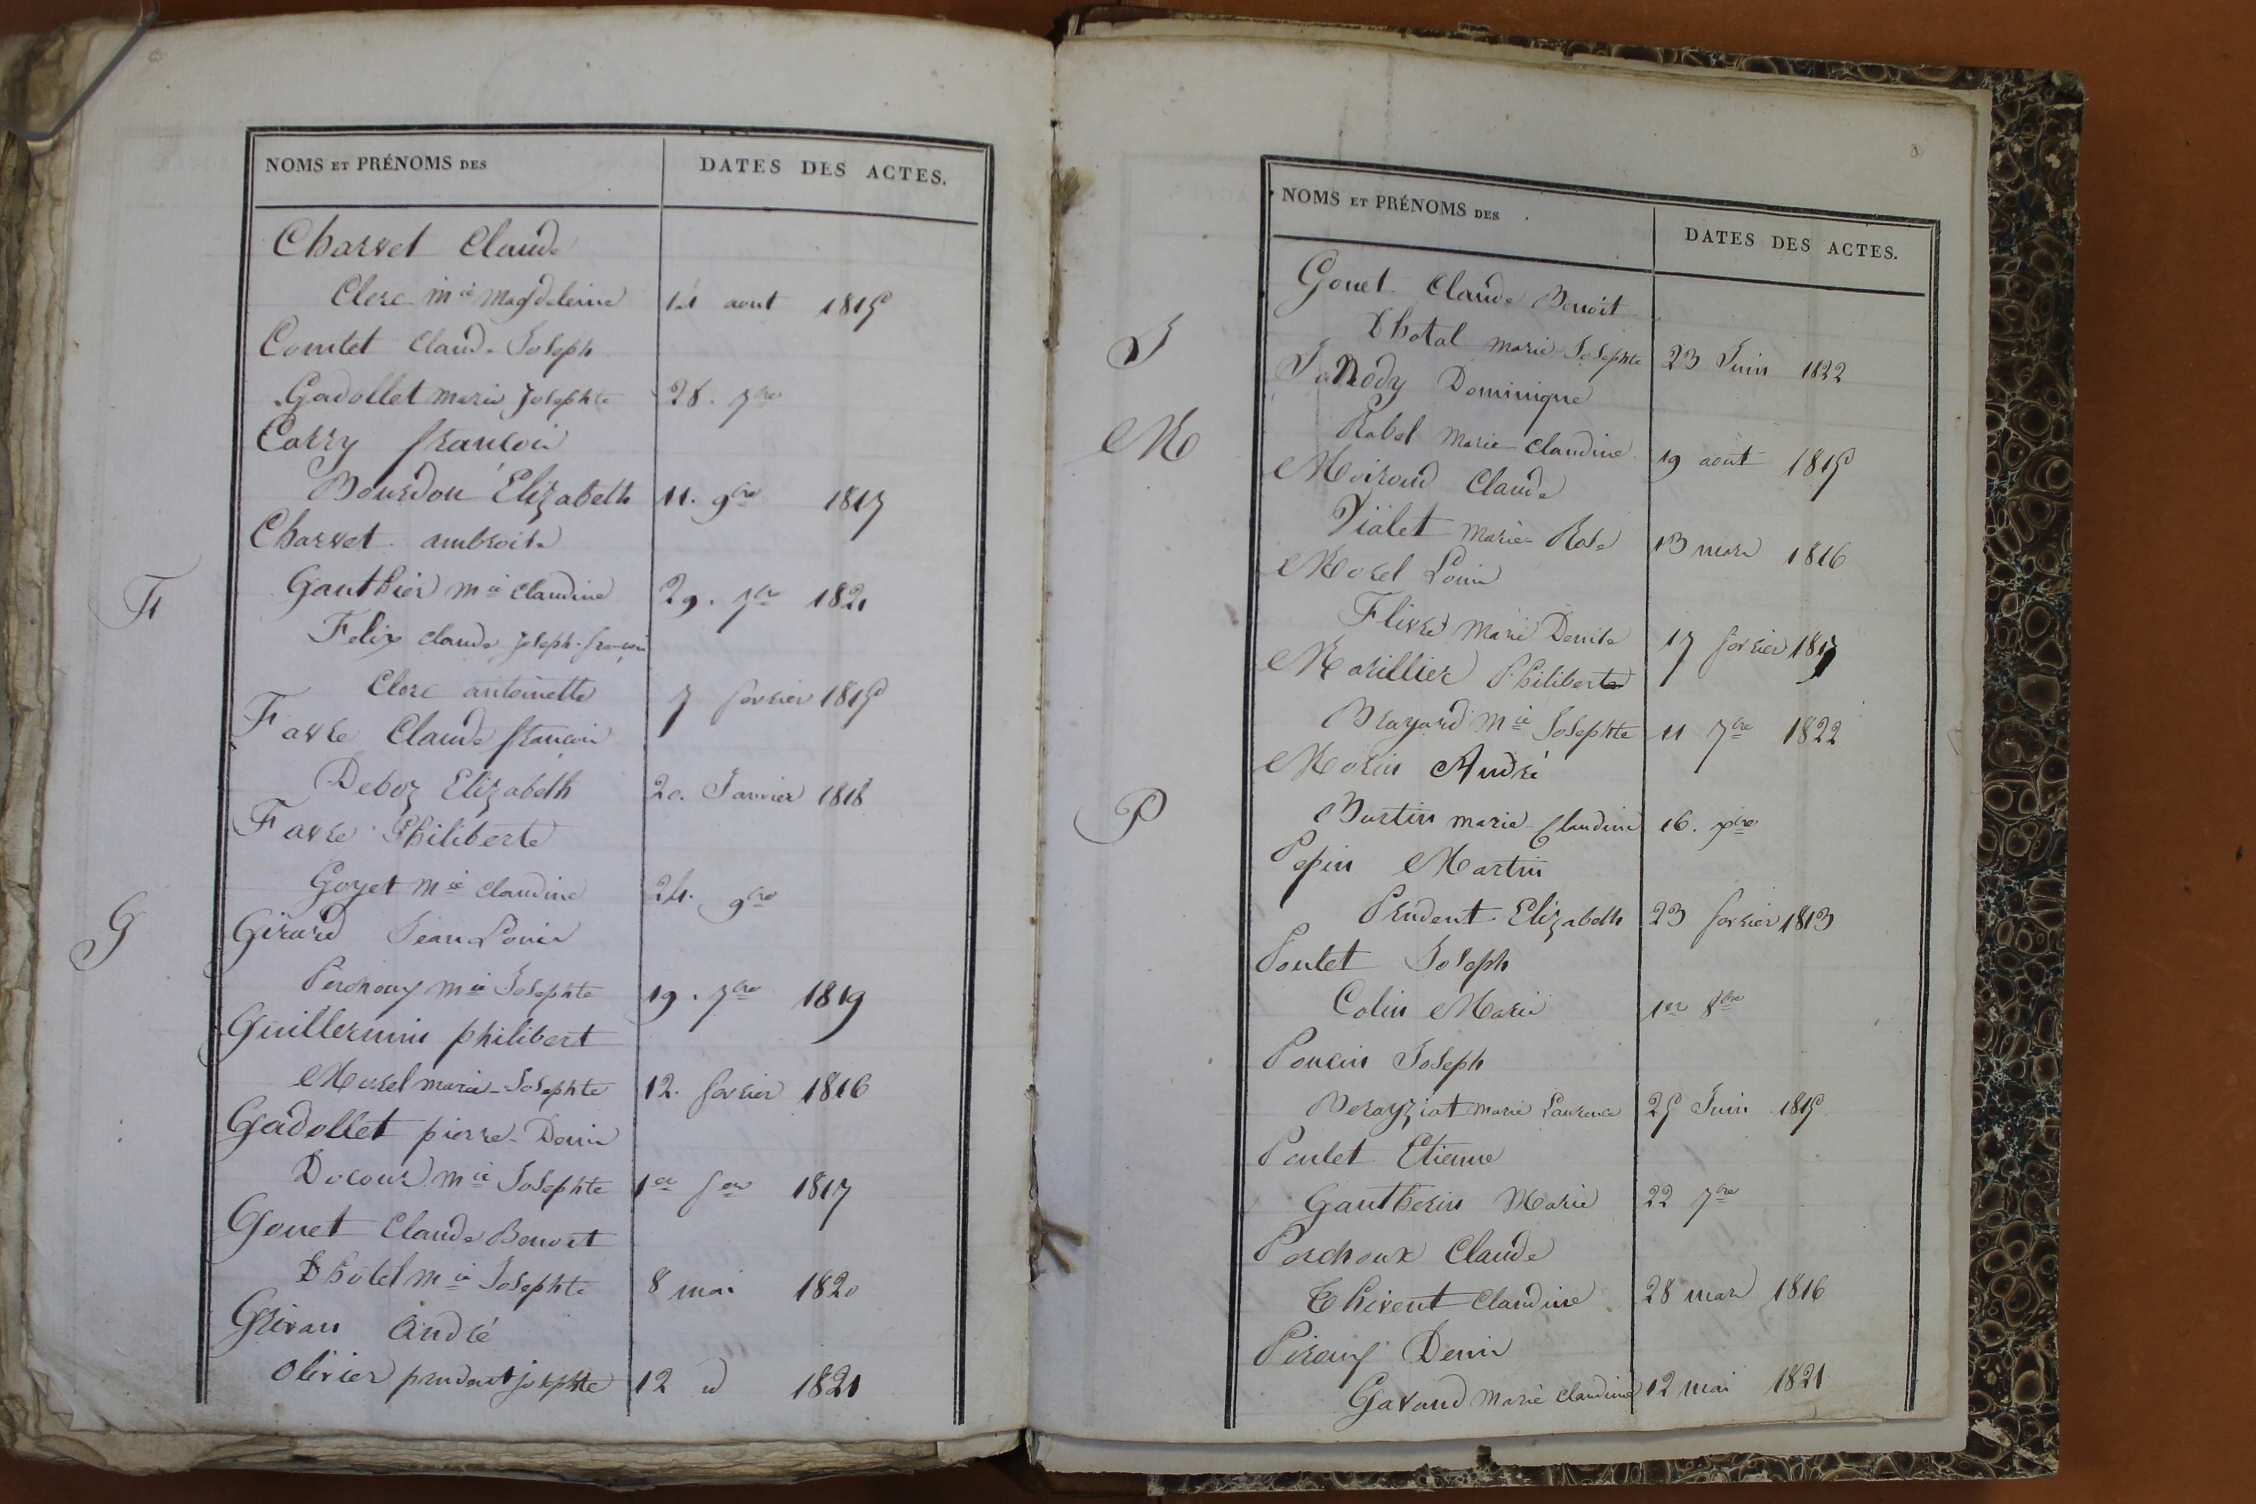 NOMS ET PRÉNOMS DES DATES DES ACTES.
Charvet Claude
Clerc mie Magdeleine 14 aout 1815
Comtet Claude Joseph
Gadollet marie Josephte 28. 7bre
Carry francois
Bourdon Elizabeth 11. 9bre 1817
Charvet ambroise
F
Gauthier mie Claudine 29. 7bre 1821
Felix Claude Joseph francois
Clerc antoinette 7 fevrier 1815
Favre Claude francois
Deboz Elizabeth 20. Janvier 1818
Favre Philiberte
Goyet mie Claudine 24. 9bre
G
Girard Jean Louis
Perchoux mie Josephte 19. 7bre 1819
Guillermin philibert
Morel marie Josephte 12. fevrier 1816
Gadollet pierre Denis
Ducour mie Josephte 1er fer 1817
Gouet Claude Benoit
Dhôtel mie Josephte 8 mai 1820
Grivan André
Olivier prudent josephte 12 id 1821
NOMS ET PRÉNOMS DES DATES DES ACTES.
Gouet Claude Benoit
Dhotal marie Josephte 23 Juin 1822
J
Janody Dominique
Rabel Marie Claudine 19 aout 1815
M
Moiroud Claude
Vialet Marie Rose 13 mars 1816
Morel Louis
Flivre Marie Denise 17 fevrier 1817
Marillier Philibert
Brayard Mie Josephte 11 7bre 1822
Morin André
Burtin marie Claudine 16. xbre
P
Pepin Martin
Prudent Elizabeth 23 fevrier 1813
Poulet Joseph
Colin Marie 1er 8bre
Poncin Joseph
Berayziat Marie Laurence 25 Juin 1815
Poulet Etienne
Gautherin Marie 22 7bre
Perchoux Claude
Thevent Claudine 28 mars 1816
Piroux Denis
Gavand Marie Claudine 12 mai 1821